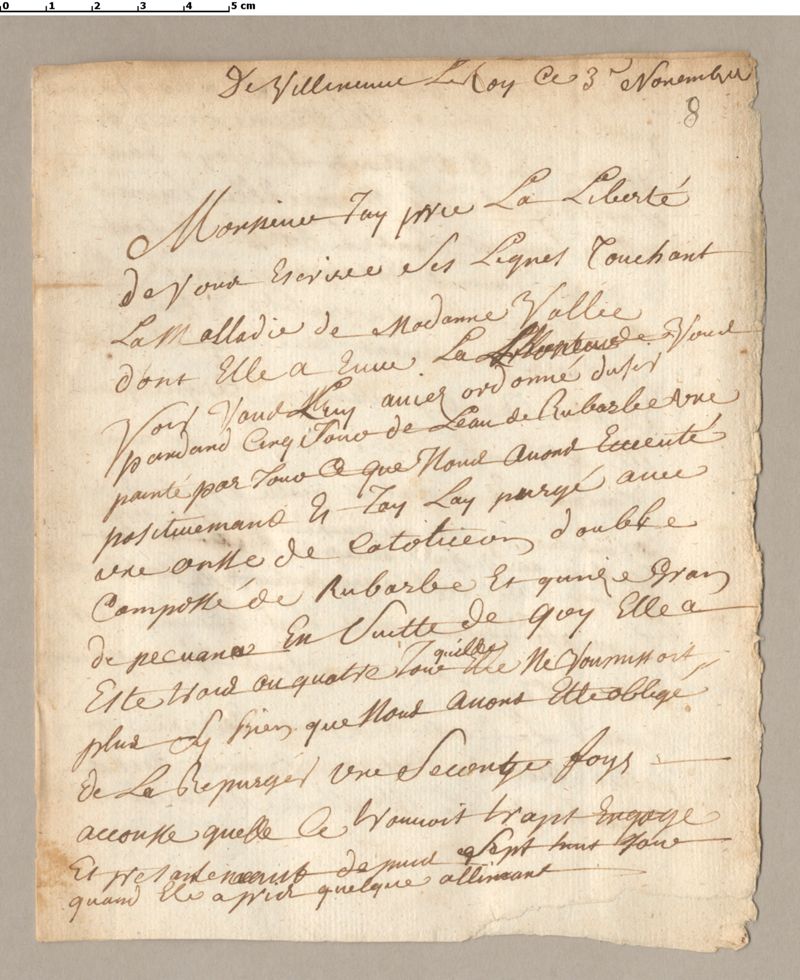 0 1 2 3 4 5 cm
De Villeneuve Le Roy Ce 3e Novembre
8
Monsieur Jay prie La Liberté
de Vous Escrire Ses Lignes Touchant
La Malladie de Madame Vallée
dont Elle a Eüue La de Vous
Voir Vous Luy aviez ordonné duser
pandand Cinq Jour de Leau de Rubarbe une
painte par Jour Ce que Nous Avons Exceuté
positivemant Et Jay Lay purgé avec
une onsse de Catolicom doubble
Composté de Rubarbe Et quinze Gran
de pecuana En Suitte de quoy Elle a
Este trois ou quatre Jour quelle Ne Vomissoit
plus Sy bien que Nous Avons Este oblegé
de La Repurger une Seconge foys
accousse quelle Ce trouvoit trapt Engagé
Et presantemant depuis Sept huit Jour
quand Elle a pris quelque allimant